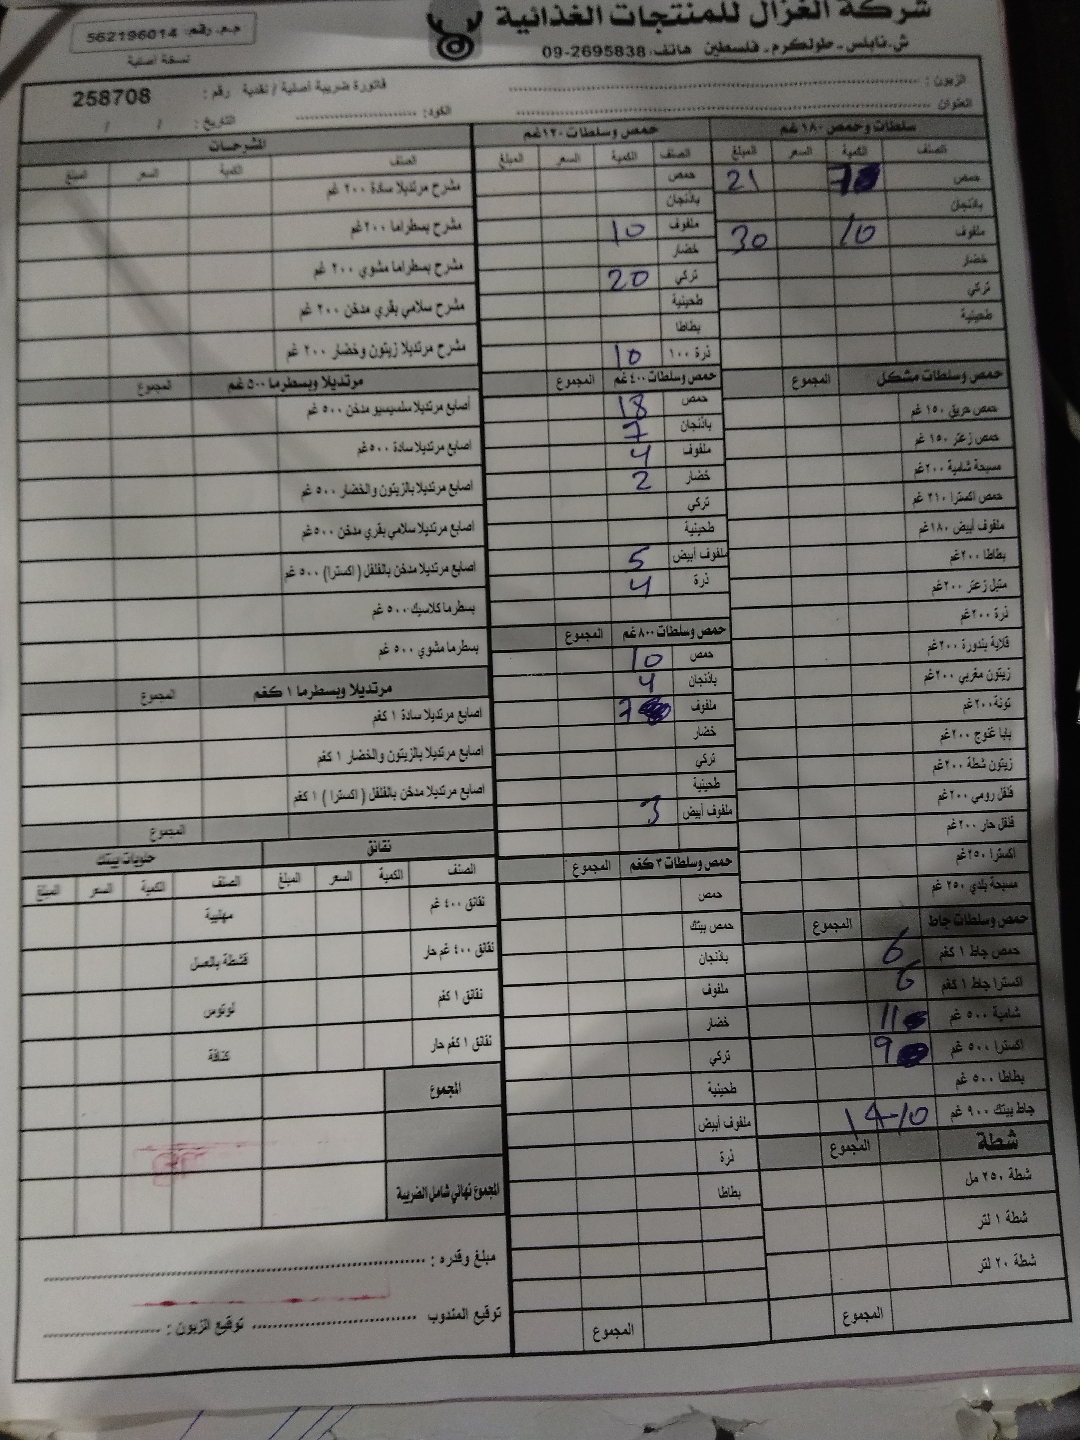 شركة الغزال للمنتجات الغذائية
ش.نابلس - طولكرم - فلسطين هاتف: 09-2695838
م.م. رقم: 562196014
نسخة أصلية
فاتورة ضريبة أصلية / نقدية رقم: 258708
الزبون:
العنوان
الكود:
التاريخ: / /
سلطات وحمص ١٨٠غم
الصنف الكمية السعر المبلغ
حمص 7 21
باذنجان
ملفوف 10 30
خضار
تركي
طحينية
حمص وسلطات مشكل المجموع
حمص حريق ١٥٠ غم
حمص زعتر ١٥٠ غم
مسبحة شامية ٢٠٠غم
حمص اكسترا ٢١٠ غم
ملفوف أبيض ١٨٠غم
بطاطا ٢٠٠غم
متبل زعتر ٢٠٠غم
ذرة ٢٠٠غم
قلاية بندورة ٢٠٠غم
زيتون مغربي ٢٠٠غم
تونة ٢٠٠غم
بابا غنوج ٢٠٠غم
زيتون شطة ٢٠٠غم
فلفل رومي ٢٠٠غم
فلفل حار ٢٠٠غم
اكسترا ٢٥٠غم
مسبحة بلدي ٢٥٠ غم
حمص وسلطات جاط المجموع
حمص جاط ١ كغم 6
اكسترا جاط ١ كغم 6
شامية ٥٠٠ غم 11
اكسترا ٥٠٠ غم 9
بطاطا ٥٠٠ غم
جاط بيتك ٩٠٠ غم 14-10
شطة المجموع
شطة ٢٥٠ مل
شطة ١ لتر
شطة ٢٠ لتر
المجموع
حمص وسلطات ١٢٠غم
الصنف الكمية السعر المبلغ
حمص
باذنجان
ملفوف 10
خضار
تركي 20
طحينية
بطاطا
ذرة ١٠٠ 10
حمص وسلطات ٤٠٠غم المجموع
حمص 18
باذنجان 7
ملفوف 4
خضار 2
تركي
طحينية
ملفوف أبيض 5
ذرة 4
حمص وسلطات ٨٠٠غم المجموع
حمص 10
باذنجان 4
ملفوف 7
خضار
تركي
طحينية
ملفوف أبيض 3
حمص وسلطات ٣ كغم المجموع
حمص
حمص بيتك
باذنجان
ملفوف
خضار
تركي
طحينية
ملفوف أبيض
ذرة
بطاطا
المجموع
المشرحات
الصنف الكمية السعر المبلغ
مشرح مرتديلا سادة ٢٠٠ غم
مشرح بسطراما ٢٠٠غم
مشرح بسطراما مشوي ٢٠٠ غم
مشرح سلامي بقري مدخن ٢٠٠ غم
مشرح مرتديلا زيتون وخضار ٢٠٠ غم
مرتديلا وبسطرما ٥٠٠ غم المجموع
أصابع مرتديلا سلسيسيو مدخن ٥٠٠ غم
اصابع مرتديلا سادة ٥٠٠غم
اصابع مرتديلا بالزيتون والخضار ٥٠٠ غم
اصابع مرتديلا سلامي بقري مدخن ٥٠٠غم
اصابع مرتديلا مدخن بالفلفل (اكسترا) ٥٠٠ غم
بسطرما كلاسيك ٥٠٠ غم
بسطرما مشوي ٥٠٠ غم
مرتديلا وبسطرما ١ كغم المجموع
اصابع مرتديلا سادة ١ كغم
اصابع مرتديلا بالزيتون والخضار ١ كغم
اصابع مرتديلا مدخن بالفلفل (اكسترا) ١ كغم
المجموع
نقانق
الصنف الكمية السعر المبلغ
نقانق ٤٠٠ غم
نقانق ٤٠٠ غم حار
نقانق ١ كغم
نقانق ١ كغم حار
حلويات بيتك
الصنف الكمية السعر المبلغ
مهلبية
قشطة بالعسل
لوتوس
كنافة
المجموع
المجموع نهائي شامل الضريبة
مبلغ وقدره:
توقيع المندوب توقيع الزبون: